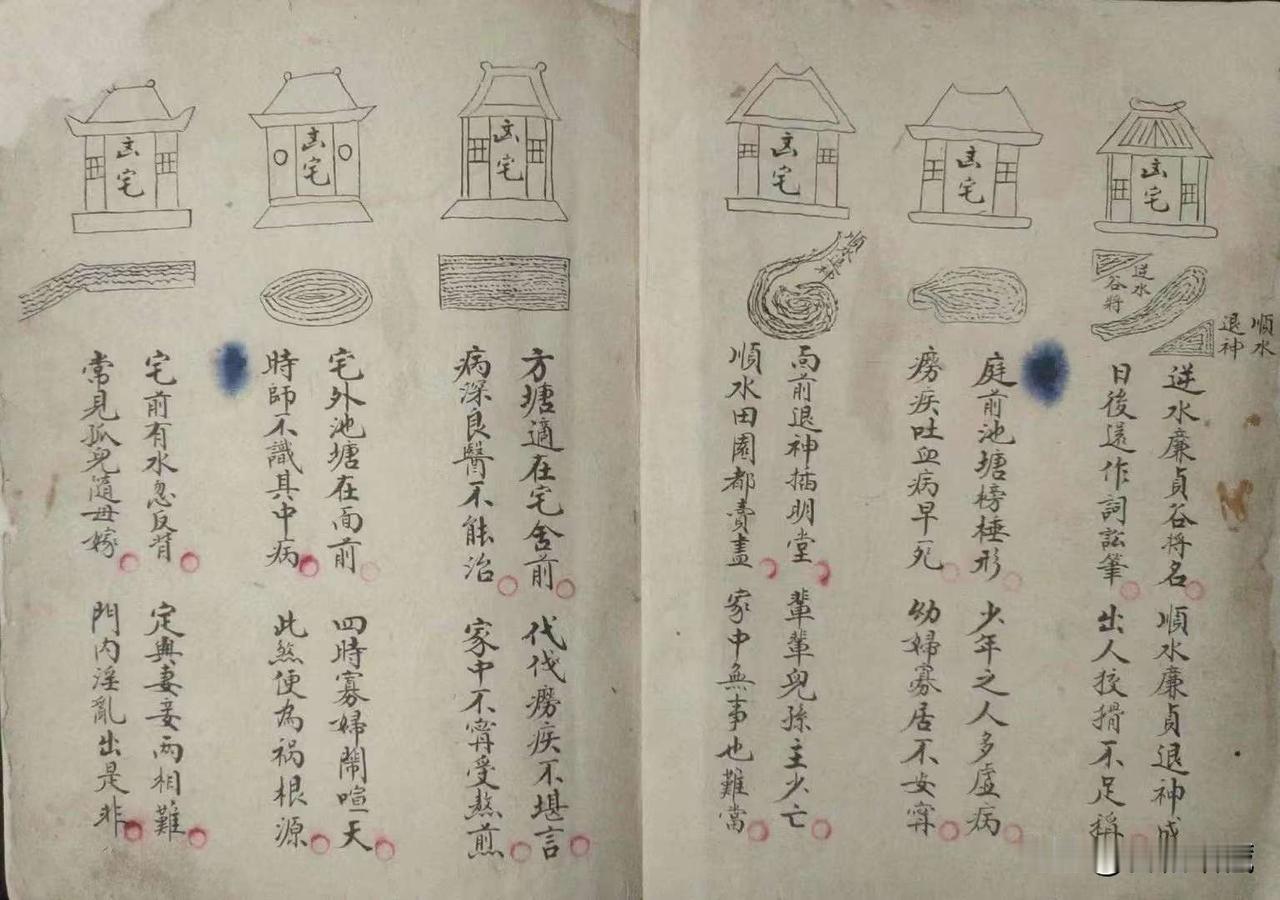 凶宅
逆水
谷將
順水
退神
逆水廉貞谷將名
順水廉貞退神成
日後還作詞訟筆
出人狡猾不足稱
凶宅
庭前池塘榜棰形
少年之人多虛病
癆疾吐血病早死
幼婦寡居不安寧
凶宅
面前退神插明堂
輩輩兒孫主少亡
順水田園都賣盡
家中無事也難當
凶宅
方塘適在宅舍前
代代癆疾不堪言
病深良醫不能治
家中不寧受熬煎
凶宅
宅外池塘在面前
四時寡婦鬧喧天
時師不識其中病
此煞便為禍根源
凶宅
宅前有水忽反背
定與妻妾兩相難
常見孤兒隨母嫁
門內淫亂出是非